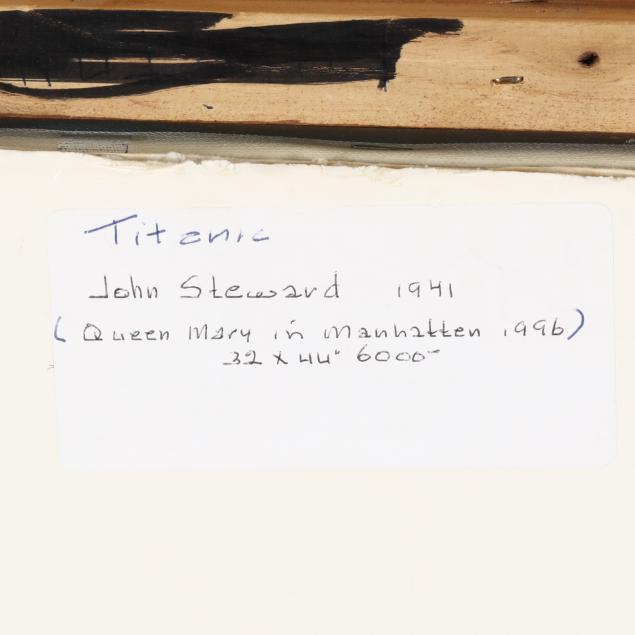 Titanic
John Steward 1941
(Queen Mary in Manhatten 1996)
32 x 44" 6000-